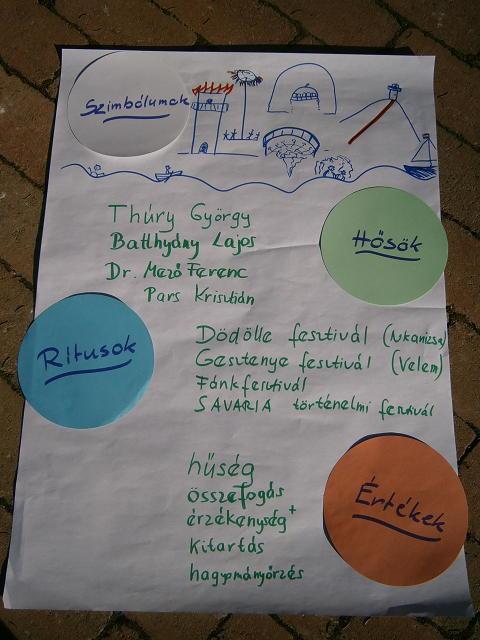 Szimbólumok
Thúry György
Batthyány Lajos
Dr. Mező Ferenc
Pars Krisztián
Hősök
Ritusok
Dödölle fesztivál (Nkanizsa)
Gesztenye fesztivál (Velem)
Fánkfesztivál
SAVARIA történelmi fesztivál
hűség
összefogás
érzékenység +
Kitartás
hagyományőrzés
Értékek